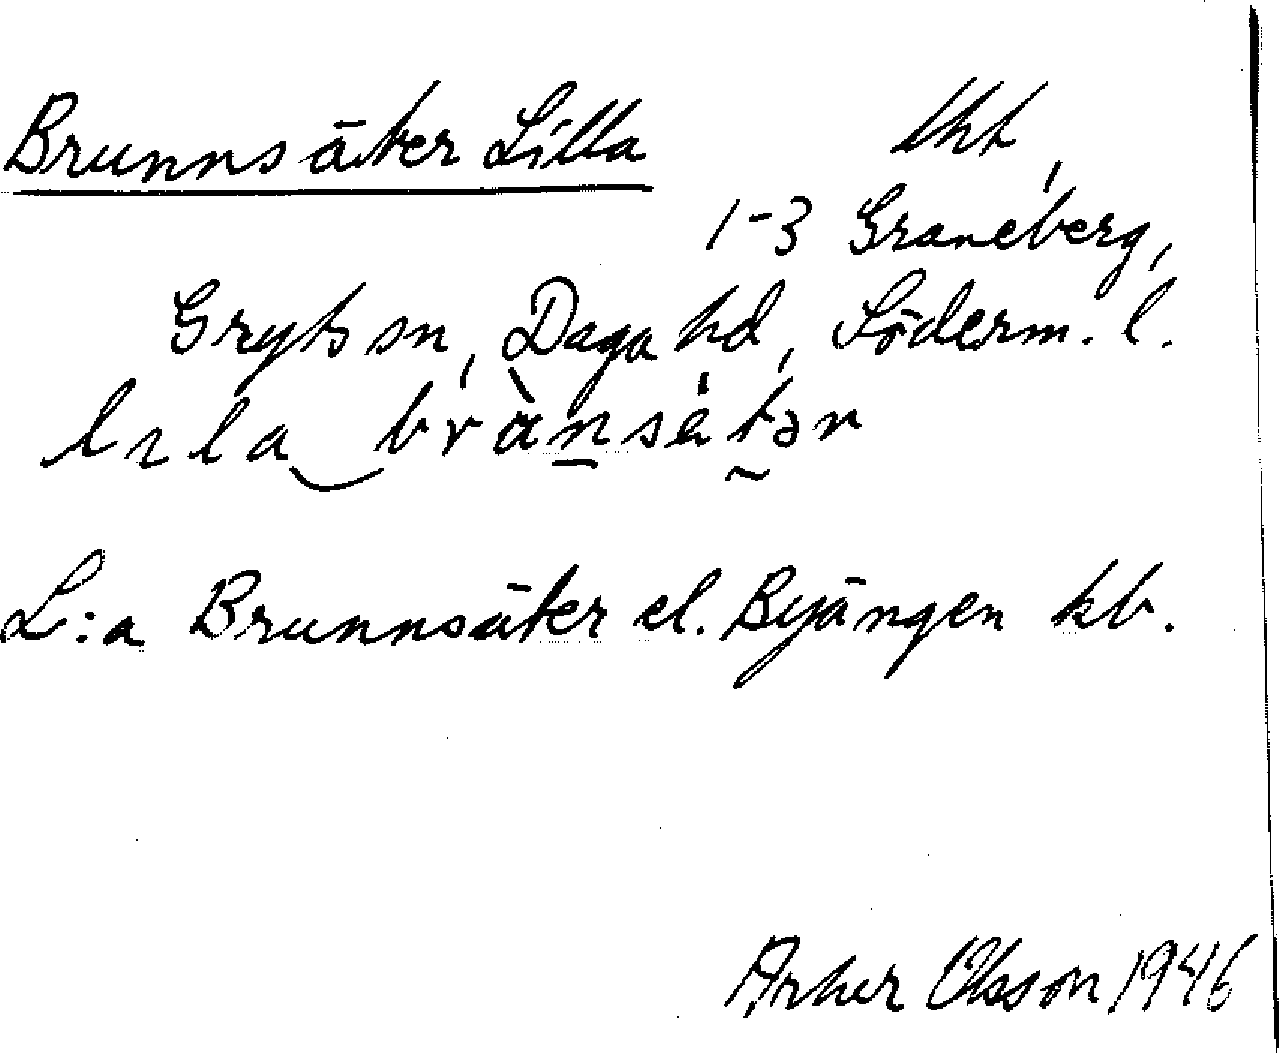 Brunnsäter Lilla lht,
1-3 Graneberg,
Gryts sn, Daga hd, Söderm. l.
L:a Brunnsäter el. Byängen kb.
Olsson 1946